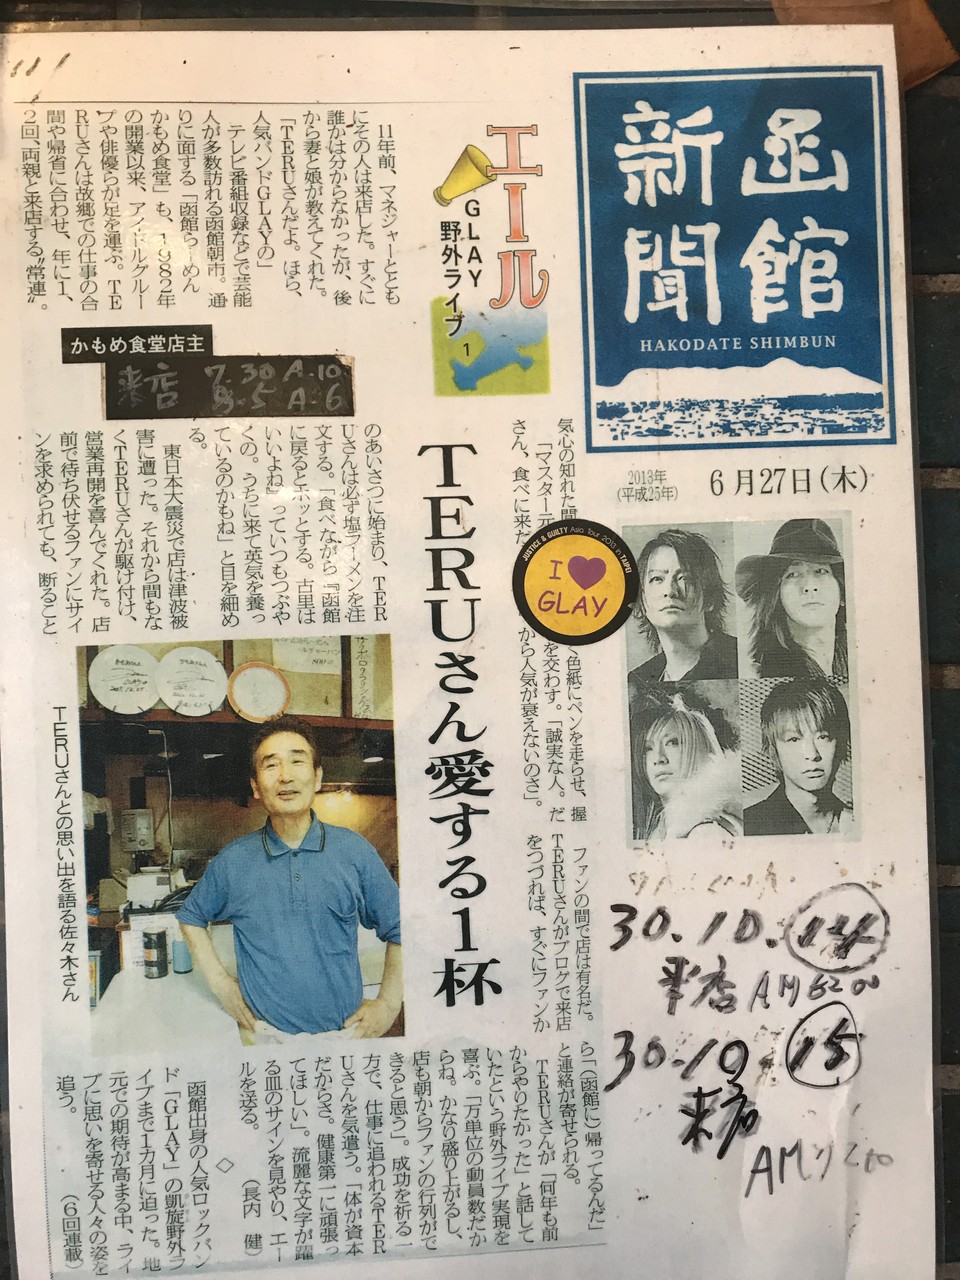 函館
新聞
HAKODATE SHIMBUN
2013年
(平成25年)
6月27日(木)
エール
GLAY
野外ライブ
1
11年前、マネジャーととも
にその人は来店した。すぐに
誰かは分からなかったが、後
から妻と娘が教えてくれた。
「TERUさんだよ。ほら、
人気バンドGLAYの」
テレビ番組収録などで芸能
人が多数訪れる函館朝市。通
りに面する「函館らーめん
かもめ食堂」も、1982年
の開業以来、アイドルグルー
プや俳優らが足を運ぶ。TE
RUさんは故郷での仕事の合
間や帰省に合わせ、年に1、
2回、両親と来店する〝常連〟。
かもめ食堂店主
来店 7.30 A.10
8.5 A.6
TERUさん愛する1杯
気心の知れた間
「マスター元
さん、食べに来だ
のあいさつに始まり、TER
Uさんは必ず塩ラーメンを注
文する。「食べながら『函館
に戻るとホッとする。古里は
いいよね』っていつもつぶや
くの。うちに来て英気を養っ
ているのかもね」と目を細め
る。
東日本大震災で店は津波被
害に遭った。それから間もな
くTERUさんが駆け付け、
営業再開を喜んでくれた。店
前で待ち伏せるファンにサイ
ンを求められても、断ること
JUSTICE & GUILTY Asia Tour 2013 in TAIPEI
I
GLAY
く色紙にペンを走らせ、握
を交わす。「誠実な人。だ
から人気が衰えないのさ」。
ファンの間で店は有名だ。
TERUさんがブログで来店
をつづれば、すぐにファンか
ら「(函館に)帰ってるんだ」
と連絡が寄せられる。
TERUさんが「何年も前
からやりたかった」と話して
いたという野外ライブ実現を
喜ぶ。「万単位の動員数だか
らね。かなり盛り上がるし、
店も朝からファンの行列がで
きると思う」。成功を祈る一
方で、仕事に追われるTER
Uさんを気遣う。「体が資本
だからさ。健康第一に頑張っ
てほしい」。流麗な文字が躍
る皿のサインを見やり、エー
ルを送る。
(長内 健)
◇
函館出身の人気ロックバン
ド「GLAY」の凱旋野外ラ
イブまで1カ月に迫った。地
元での期待が高まる中、ライ
ブに思いを寄せる人々の姿を
追う。
(6回連載)
TERUさんとの思い出を語る佐々木さん
30.10.14
来店 AM
30.10 15
来店
AM